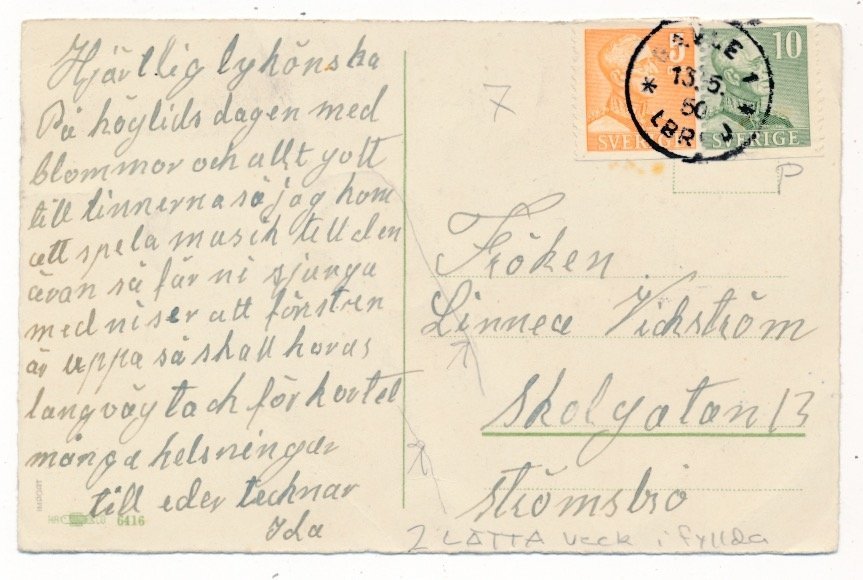 Hjärtlig lyhönska
På höglidsdagen med
blommor och allt gott
till linnerna så jag kom
att spela musik till den
ävan så får ni sjunga
med ni ser att fönstren
är uppa så skall horas
langvägt ach för kortet
många helsningar
till eder technar
Ida
IMPORT
6416
7
5
10
SVERIGE
SVERIGE
GÄVLE 1
13.5.
50
LBR
P
Fröken
Linnea Vickström
Skolgatan 13
Strömsbro
2 LÄTTA veck i fyllda